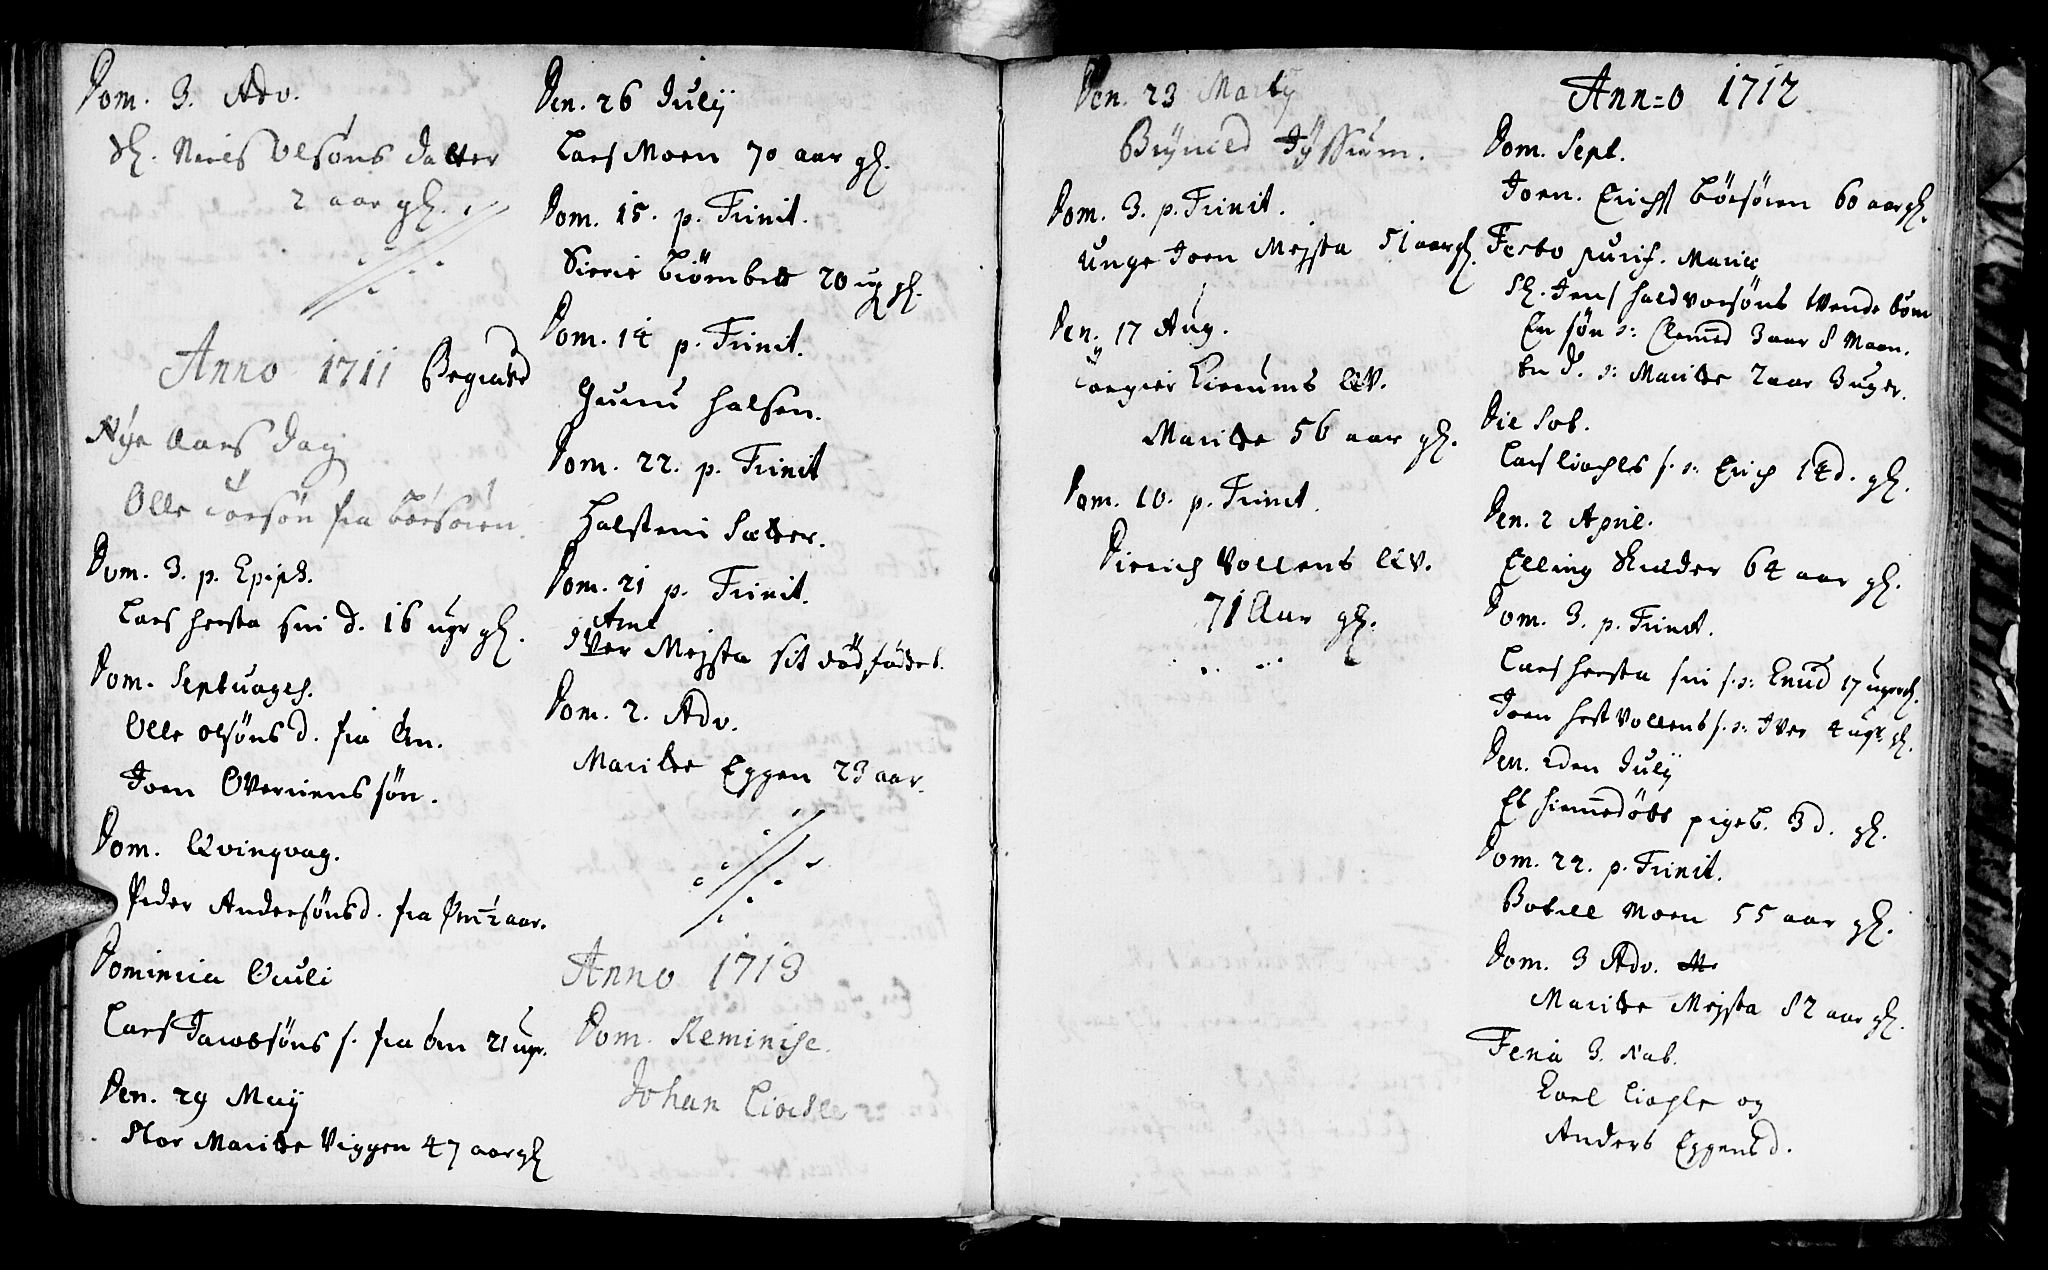 Dom. 3. Adv.
Sl. Niels Olsöns datter
2 aar gl.
Anno 1711 Begravd
Nye Aars dag
Olle Torsön fra Börsöien.
Dom. 3. p. Epiph.
Lars hersta hui d. 16 uger gl.
Dom. Septuages.
Olle olsöns d. fra
Joen Overviens sön.
Dom. Qvinqvag.
Peder Andersöns d. fra ½ aar.
Dominica Oculi
Lars Jacobsöns s. fra 21 uger.
Den. 29 Maij
Stor Maritte Viggen 47 aar gl
Den. 26 Julij
Lars Moen 70 aar gl.
Dom. 15. p. Trinit.
Sirrie 20 ug gl.
Dom. 14 p. Trinit.
Gunnu halsen.
Dom. 22. p. Trinit
Halsteni Sætter.
Dom. 21 p. Trinit.
Arnt
Iver Mejsta sit död fødde b.
Dom. 2. Adv.
Maritte Eggen 23 aar.
Anno 1713
Dom. Reminisc.
Johan
Den. 23 Martij
Bryned
Dom. 3. p. Trinit.
Unge Joen Mejsta 51 aar gl.
Den. 17 Aug.
Maritte 56 aar gl.
Dom. 10. p. Trinit.
Dierich Vollens
71 Aar gl.
Ann=o 1712
Dom. Sept.
Joen. Erichs Börsöien 60 aar gl.
Festo purif. Mariæ
Sl. Jens haldvorsöns tvende börn
En sön n: Clemed 3 aar 8 Maan.
En d. n: Maritte 2 aar 3 uger.
Die Sob.
Lars s. n: Erich 14 d. gl.
Den. 2 April.
Elling 64 aar gl.
Dom. 3. p. Trinit.
Lars hersta hui s. n: Knud 17 uger gl.
Joen hest Vollens s. n: Iver 4 uger. gl.
Den. 2den Julij
Et hiemedöbt pigeb. 3 d. gl.
Dom. 22. p. Trinit.
Bodill Moen 55 aar gl.
Dom. 3 Adv.
Maritte Mejsta 82 aar gl.
Feria 3. Nat.
og
Anders Eggens d.